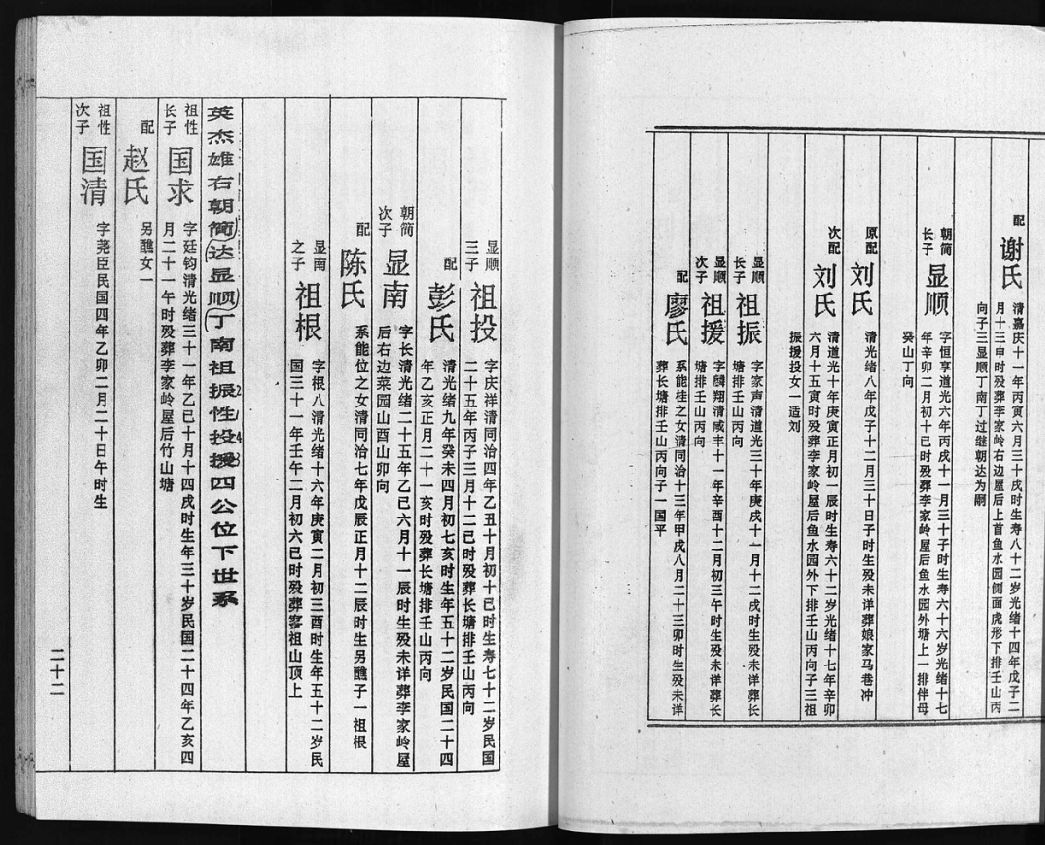 配
谢氏
清嘉庆十一年丙寅六月三十戌时生寿八十二岁光绪十四年戊子二
月十三申时殁葬李家岭右边屋后上首鱼水园侧面虎形下排壬山丙
向子三显顺丁南丁过继朝达为嗣
朝简
长子
显顺
字恒享道光六年丙戌十一月三十子时生寿六十六岁光绪十七
年辛卯二月初十巳时殁葬李家岭屋后鱼水园外塘上一排伴母
癸山丁向
原配
刘氏
清光绪八年戊子十二月三十日子时生殁未详葬娘家马巷冲
次配
刘氏
清道光十年庚寅正月初一辰时生寿六十二岁光绪十七年辛卯
六月十五寅时殁葬李家岭屋后鱼水园外下排壬山丙向子三祖
振援投女一适刘
显顺
长子
祖振
字家声清道光三十年庚戌十一月十二戌时生殁未详葬长
塘排壬山丙向
显顺
次子
祖援
字麟翔清咸丰十一年辛酉十二月初三午时生殁未详葬长
塘排壬山丙向
配
廖氏
系能桂之女清同治十三年甲戌八月二十三卯时生殁未详
葬长塘排壬山丙向子一国平
显顺
三子
祖投
字庆祥清同治四年乙丑十月初十巳时生寿七十二岁民国
二十五年丙子三月十二巳时殁葬长塘排壬山丙向
配
彭氏
清光绪九年癸未四月初七亥时生年五十二岁民国二十四
年乙亥正月二十一亥时殁葬长塘排壬山丙向
朝简
次子
显南
字长清光绪二十五年乙巳六月十一辰时生殁未详葬李家岭屋
后右边菜园山酉山卯向
配
陈氏
系能位之女清同治七年戊辰正月十二辰时生另醮子一祖根
显南
之子
祖根
字根八清光绪十六年庚寅二月初三酉时生年五十二岁民
国三十一年壬午二月初六巳时殁葬寨祖山顶上
英杰雄右朝简达显顺丁南祖振性投援四公位下世系
祖性
长子
国求
字廷钧清光绪三十一年乙巳十月十四戌时生年三十岁民国二十四年乙亥四
月二十一午时殁葬李家岭屋后竹山塘
配
赵氏
另醮女一
祖性
次子
国清
字尧臣民国四年乙卯二月二十日午时生
二十二